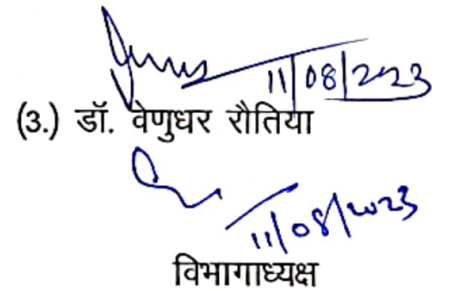 11/08/2023
(3.) डॉ. वेणुधर रौतिया
11/08/2023
विभागाध्यक्ष